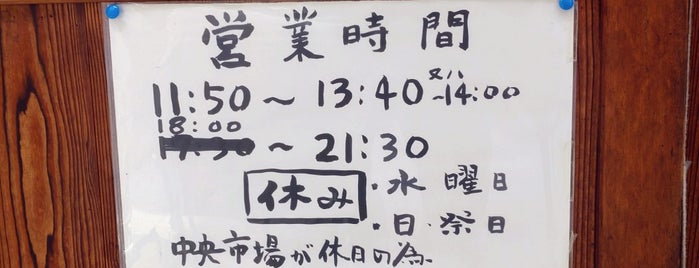 営業時間
11:50～13:40 又ハ ～14:00
18:00
17:30～21:30
休み ・水曜日
・日・祭日
中央市場が休日の為